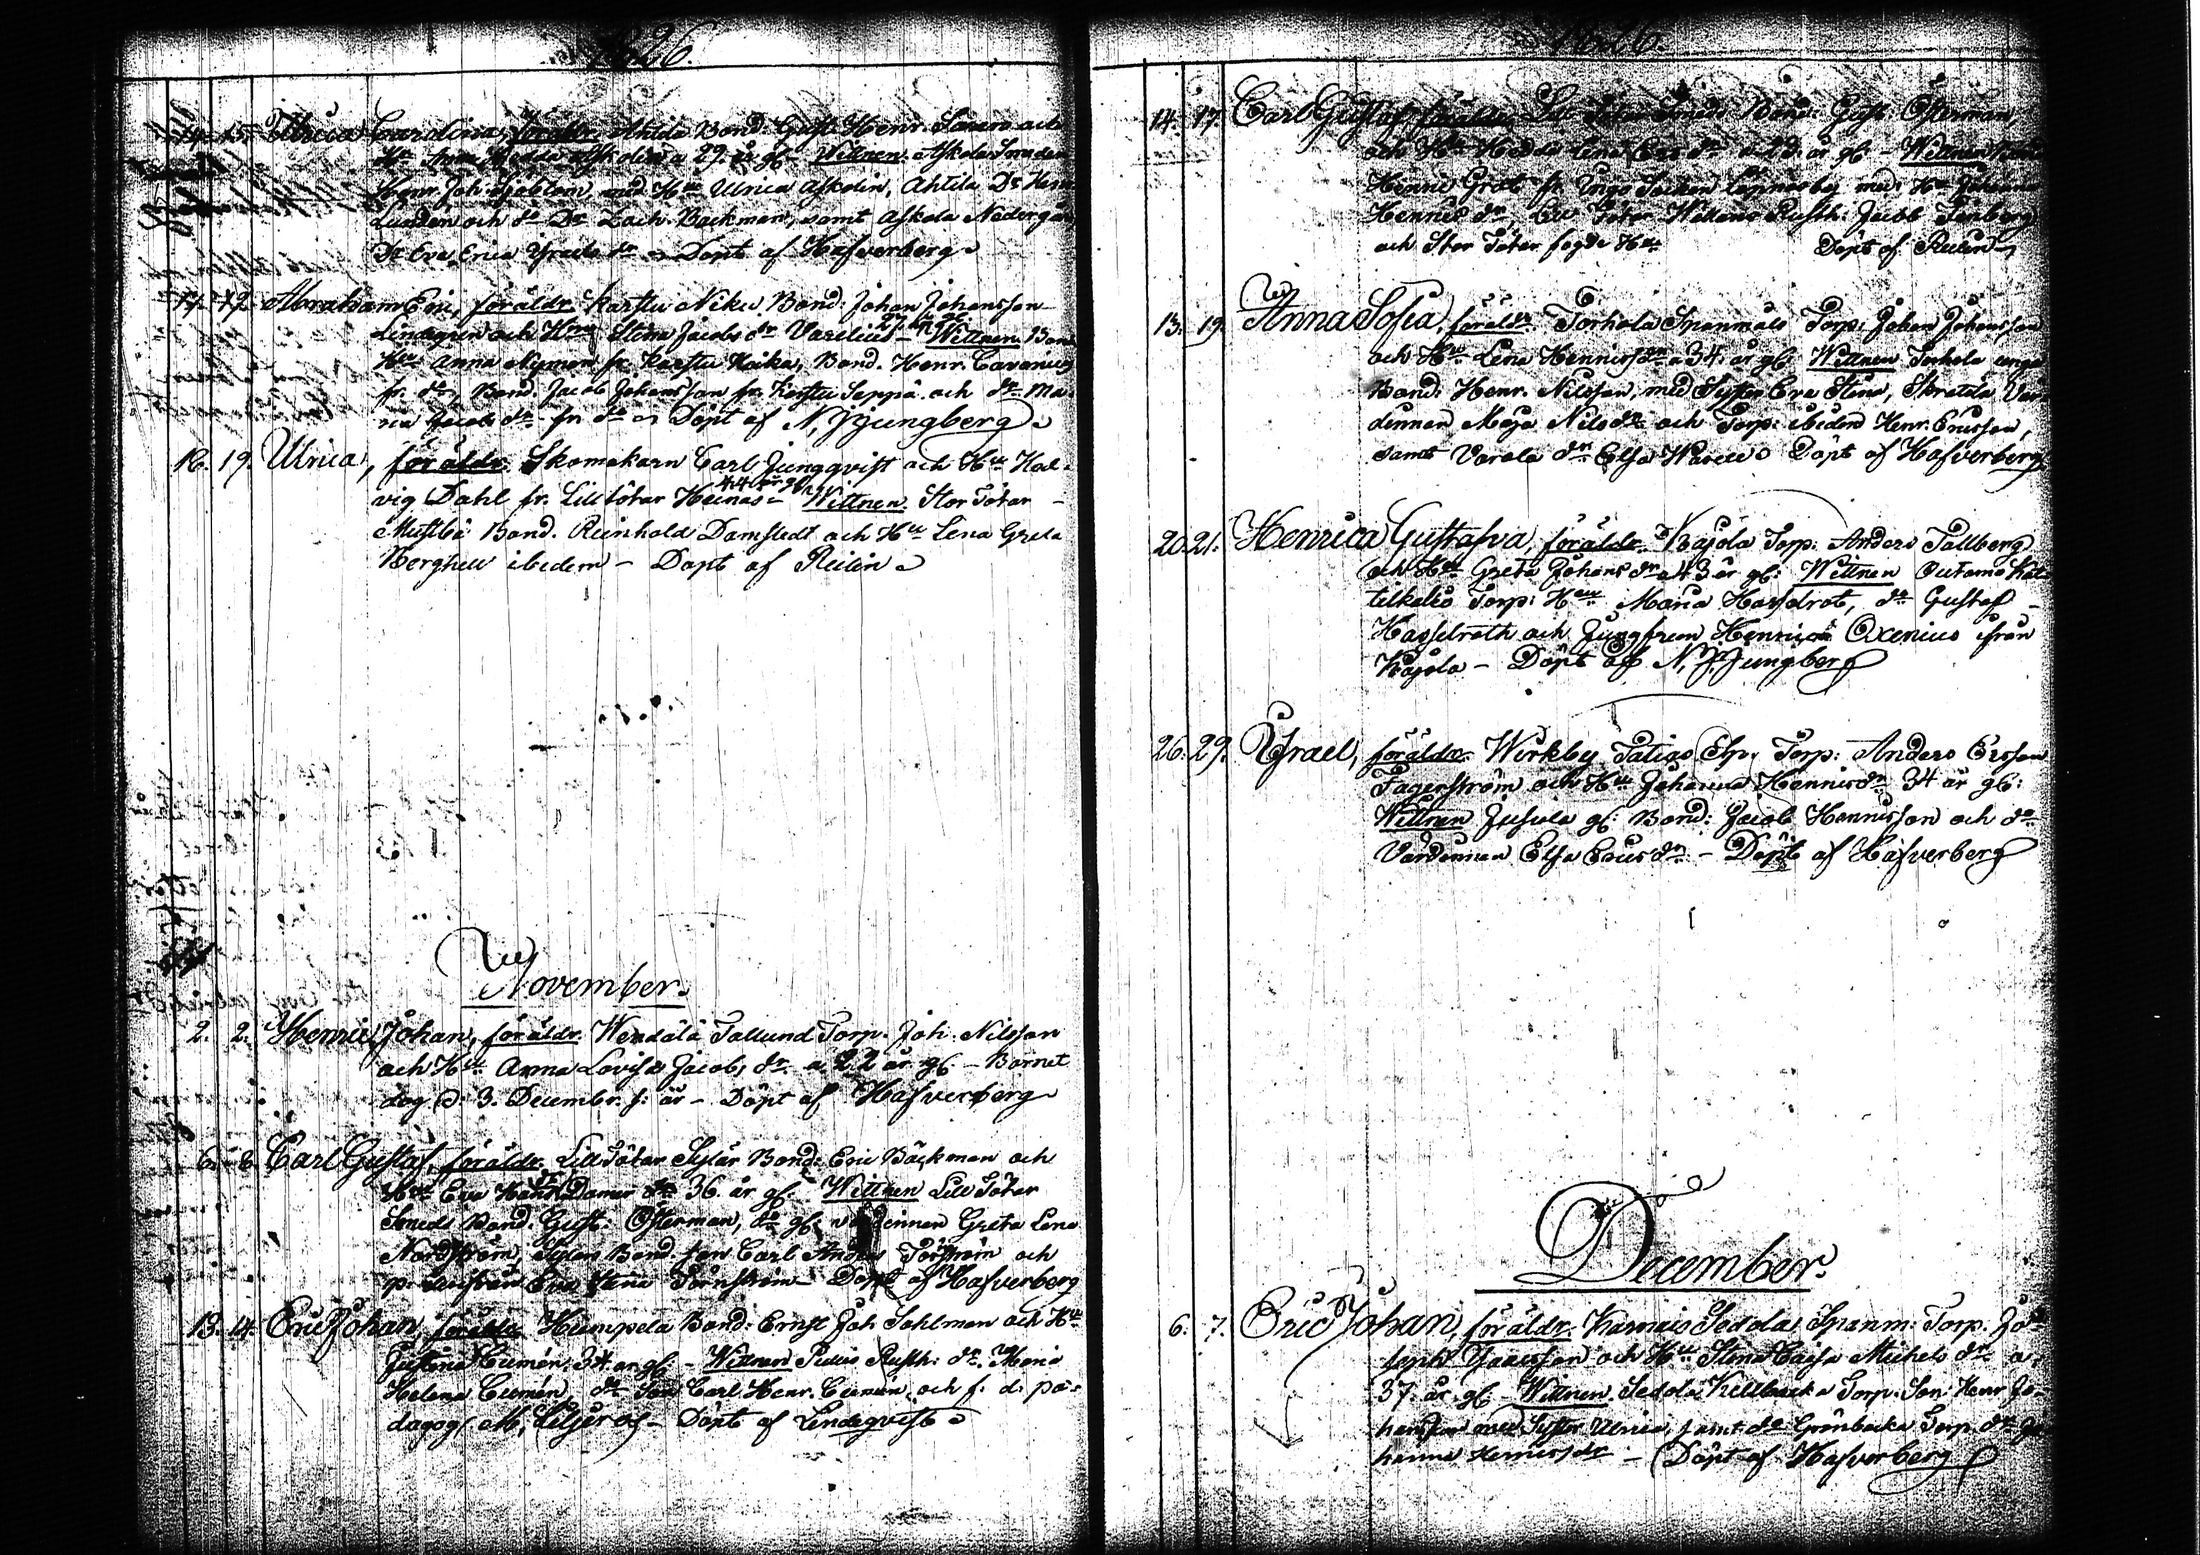 1826.
14. 15. Ulrica Carolina, föräldr. Ahtila Bond: Gust. Henr. och
Hu Anna Hedda Askolin a 29. år gl. Wittnen. Askola
Henr. Joh. Sjöblom, med Hu Ulrica Askolin, Ahtila Dr. Henr.
Lunden och do Dr Zach. Backman, samt Askola Nedergård
Dr Eva Erica Yraels dr Döpt af Hafverberg
17. 19. Abraham Eric, föräldr. Karstu Niku Bond: Johan Johansson
Lindegren och Hu Stina Jacobs dr Vaselius - Wittnen. Bond
Hu Anna Nyman fr. Karstu Kaika, Bond. Henr. Cavenius
fr. do, Bond. Jacob Johansson fr. Karstu Seppä och dr Ma-
ria Jacobs dr fr. do Döpt af N, Ljungberg
16. 19. Ulrica, föräldr. Skomakarn Carl Jungqvist och Hu Hed-
vig Dahl fr. Lill Jötar Heinas 44 år gl. - Wittnen. Stor Jötar
Mustbä Bond. Reinhold Damstedt och Hu Lena Greta
Berghell ibidem - Döpt af Reilin
November.
2. 2. Henric Johan, föräldr. Wendälä Tallund Torp. Joh. Nilsson
och Hu Anna Lovisa Jacobs dr a 22 år gl. - Barnet
dog d. 3. Decembr. s: år - Döpt af Hafverberg
6. 8. Carl Gustaf, föräldr. Lill Jötar Sylär Bond: Eric Bäckman och
Hu Eva Damer dr 36. år gl. Wittnen Lill Jötar
Smeds Bond. Gust: Österman, do gl: värdinnan Greta Lena
Nordström, Sylärs Bond. son Carl Anders Törnström och
Eva Stina Törnström - Döpt af Hafverberg
13. 14. Eric Johan föräldr. Humpela Bond: Ernst Joh Sahlman och Hu
Justina Cumén. 34. år gl. - Wittnen Pullis Rusth: dr. Maria
Helena Cumén, do Son Carl Henr. Cumén och f. d. pä-
dagog. M, Liljeros - Döpt af Lindeqvist
1826.
14. 17. Carl Gustaf, föräldr. Lill Jötar Smeds Bond: Gust. Österman,
och Hu Hedda Lena Erics dr a 23. år gl. - Wittnen
Henric Grot fr. Ungo Socken Lepnäsby med Hu Johanna
Henrics dr, Lill Jötar Rusth. Jacob Tenberg
och Stor Jötar fogde Hu Döpt af Reilin
13. 19. Anna Sofia, föräldr. Torhola Spanmåls Torp. Johan Johansson
och Hu Lena Henricsdr a 34. år gl. Wittnen Torhola unge
Bond: Henr. Nilsson, med Syster Eva Stina, Skraatila Vär-
dinnan Maja Nils dr och Torp. ibidem Henr. Ericsson,
samt Varola dr Elsa Döpt af Hafverberg
20. 21. Henrica Gustafva, föräldr. Wajola Torp: Anders Tallberg
och Hu Greta Johans dr a 43 år gl: Wittnen Outamo Kät-
telkalio Torp: Hu Maria Hasselrot, do Gustaf
Hasselroth och Jungfrun Henrica Oxenius ifrån
Wajola - Döpt af N, Ljungberg
26. 29. Yrael, föräldr. Wirkby Tatias Torp: Anders Ersson
Fagerström och Hu Johanna Henricsdr 34 år gl:
Wittnen Jusula gl: Bond: Jacob Henricsson och do
Värdinnan Elsa Ericsdr - Döpt af Hafverberg
December.
6. 7. Eric Johan, föräldr. Karnais Sedola Spanm: Torp. Jo-
seph Yraelsson och Hu Stina Caisa Michels dr a.
37. år gl - Wittnen. Sedola Källbacka Torp: Son Henr Jo-
hansson med Syster Ulrica, samt do Grönbacka Torp. dr Jo-
hanna Henricsdr - Döpt af Hafverberg